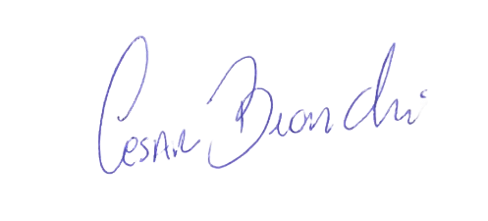 Cesar Bianchi